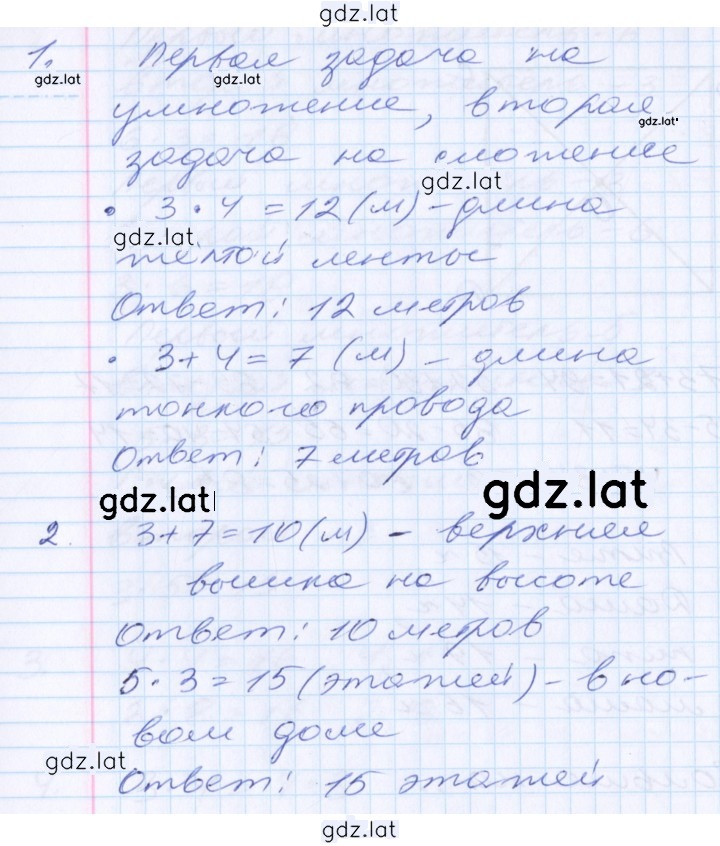 gdz.lat
1. Первая задача на
gdz.lat gdz.lat
умножение, вторая
gdz.lat
задача на сложение
gdz.lat
• 3 · 4 = 12 (м) - длина
gdz.lat
желтой ленты
Ответ: 12 метров
• 3 + 4 = 7 (м) - длина
тонкого провода
Ответ: 7 метров
gdz.lat gdz.lat
2. 3 + 7 = 10 (м) - верхняя
вышка на высоте
Ответ: 10 метров
5 · 3 = 15 (этажей) - в но-
вом доме
gdz.lat
Ответ: 15 этажей
gdz.lat